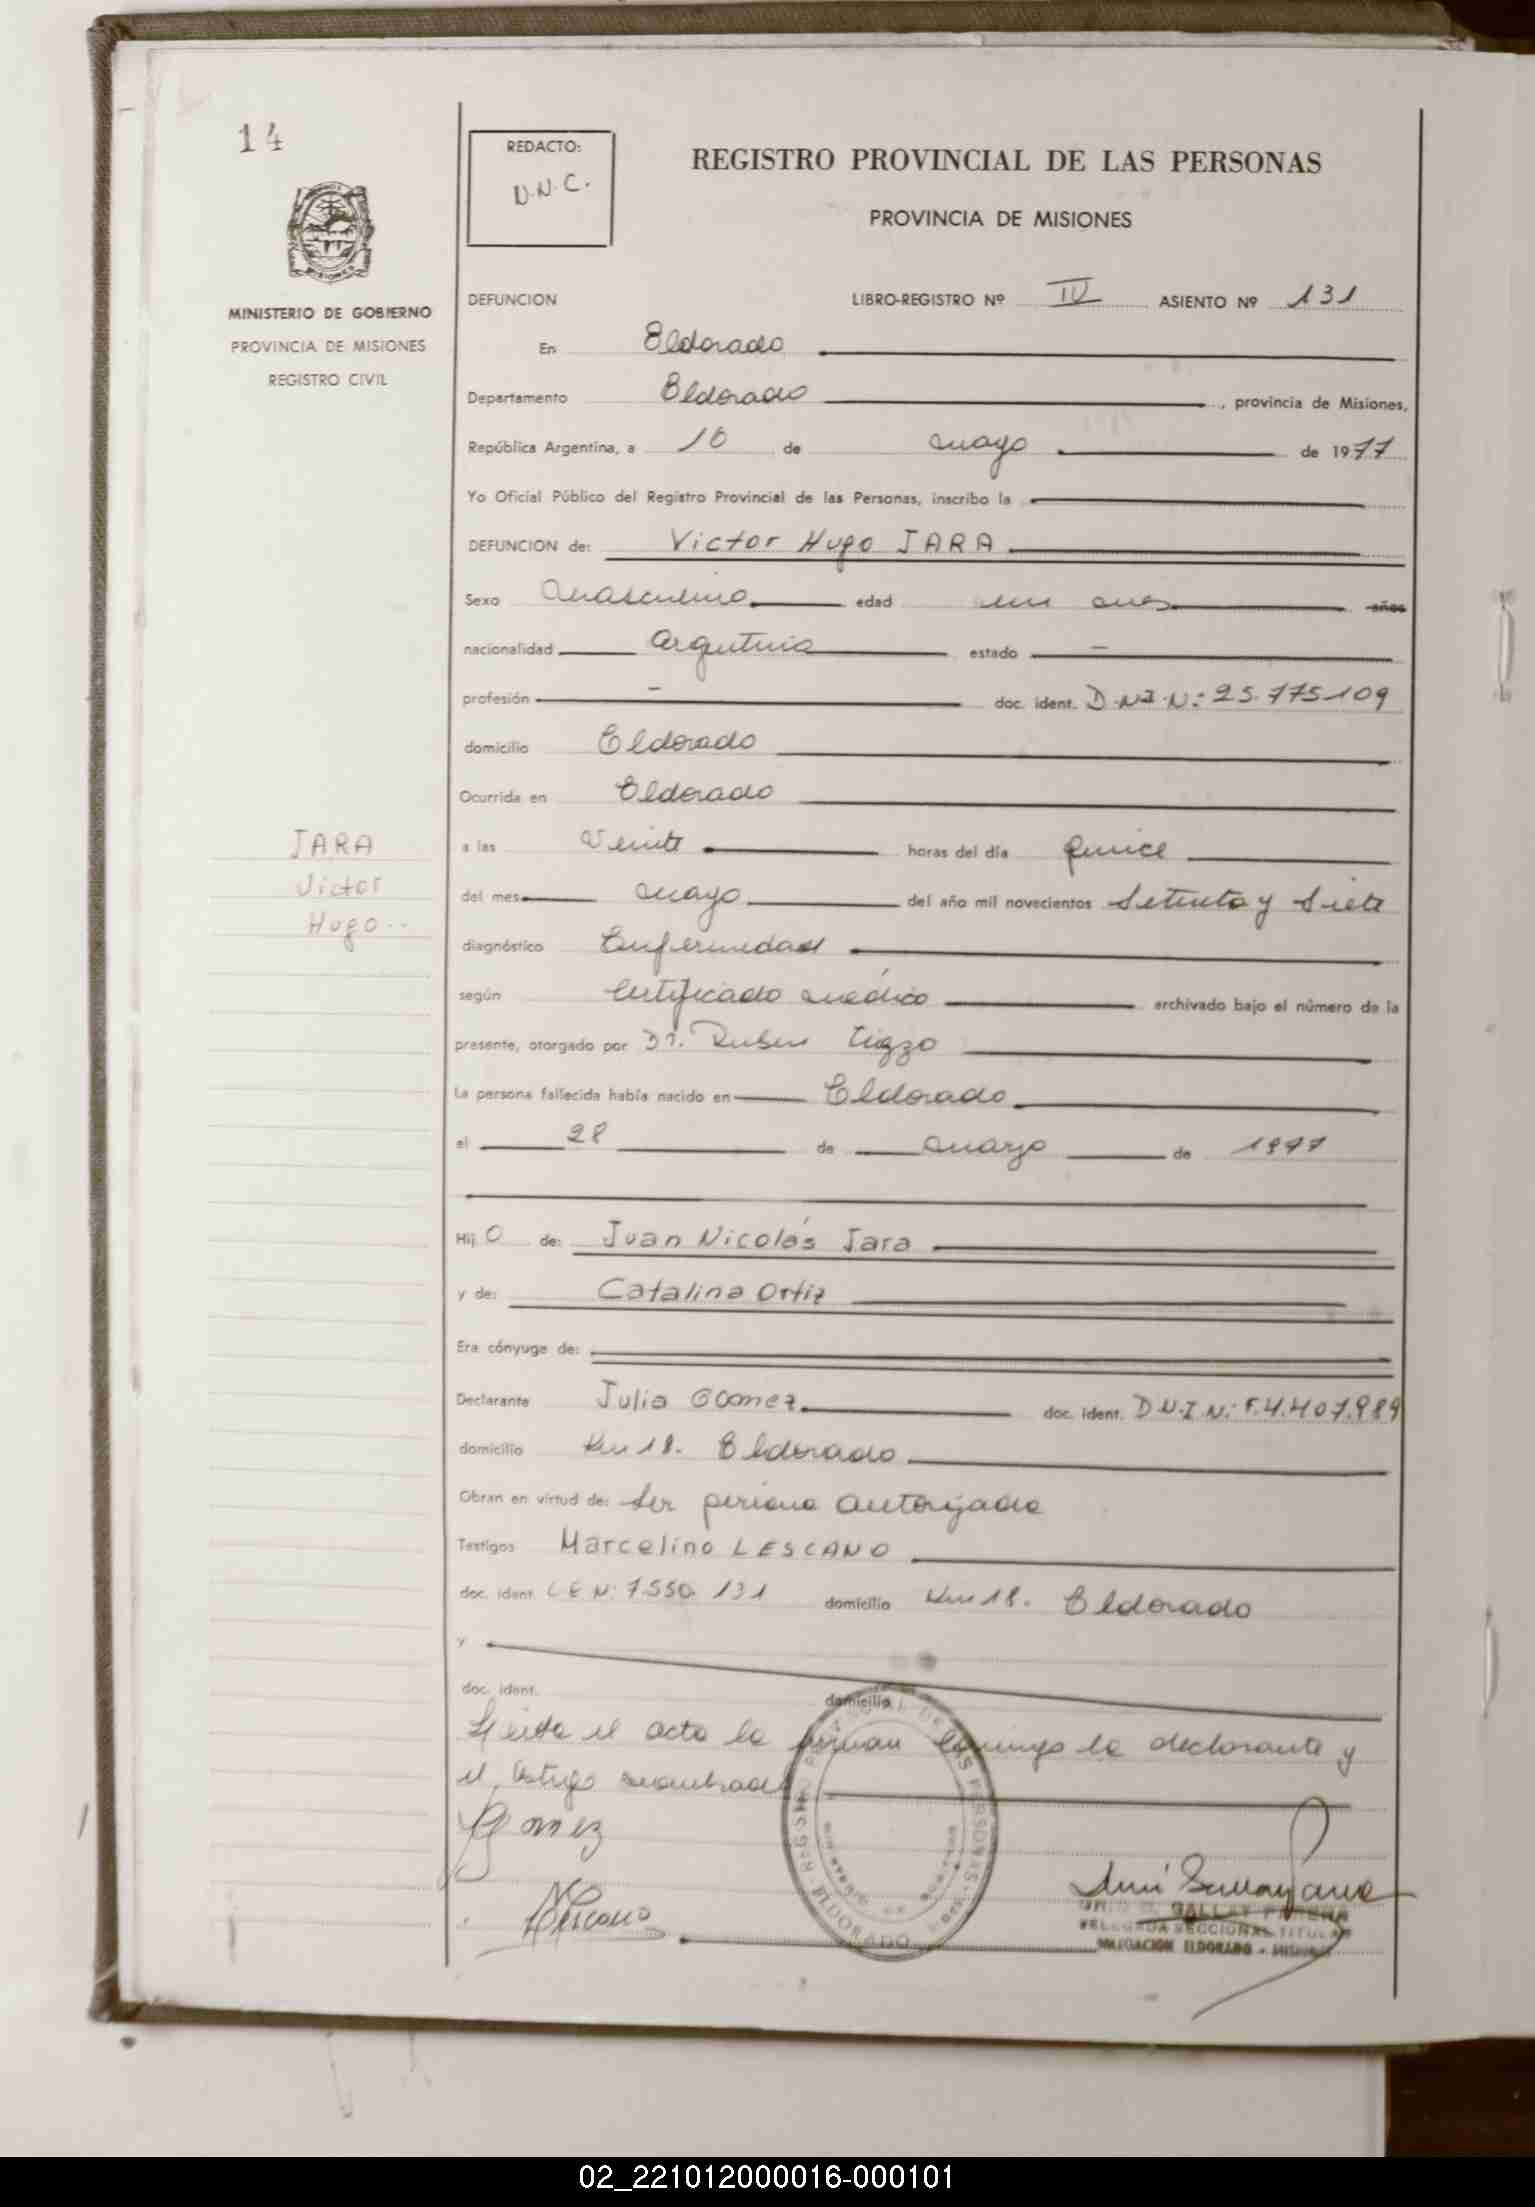 14
REDACTO:
D.N.C.
REGISTRO PROVINCIAL DE LAS PERSONAS
PROVINCIA DE MISIONES
MINISTERIO DE GOBIERNO
PROVINCIA DE MISIONES
REGISTRO CIVIL
DEFUNCION LIBRO-REGISTRO Nº IV ASIENTO Nº 131
En Eldorado
Departamento Eldorado, provincia de Misiones,
República Argentina, a 16 de mayo de 1977
Yo Oficial Público del Registro Provincial de las Personas, inscribo la
DEFUNCION de: Victor Hugo JARA
Sexo Masculino edad un mes años
nacionalidad Argentina estado -
profesión - doc. ident. D.N.I.N: 25.775109
domicilio Eldorado
Ocurrida en Eldorado
JARA
Victor
Hugo
a las Veinte horas del día quince
del mes mayo del año mil novecientos Setenta y Siete
diagnóstico Enfermedad
según Certificado médico archivado bajo el número de la
presente, otorgado por Dr. Ruben Tizzo
La persona fallecida había nacido en Eldorado
el 28 de marzo de 1977
Hij O de: Juan Nicolás Jara
y de: Catalina Ortiz
Era cónyuge de:
Declarante Julia Gomez doc. ident. D.N.I.N: F.4.407.989
domicilio Km 18. Eldorado
Obran en virtud de: Ser persona autorizada
Testigos Marcelino LESCANO
doc. ident. L E N: 7.550.131 domicilio Km 18. Eldorado
y
doc. ident. domicilio
Leída el acta la firman conmigo la declarante y
el testigo nombrado
Gomez
Lescano
REGISTRO PROVINCIAL DE LAS PERSONAS
ELDORADO
DELEGADA SECCIONAL TITULAR
DELEGACION ELDORADO - MISIONES
02_221012000016-000101